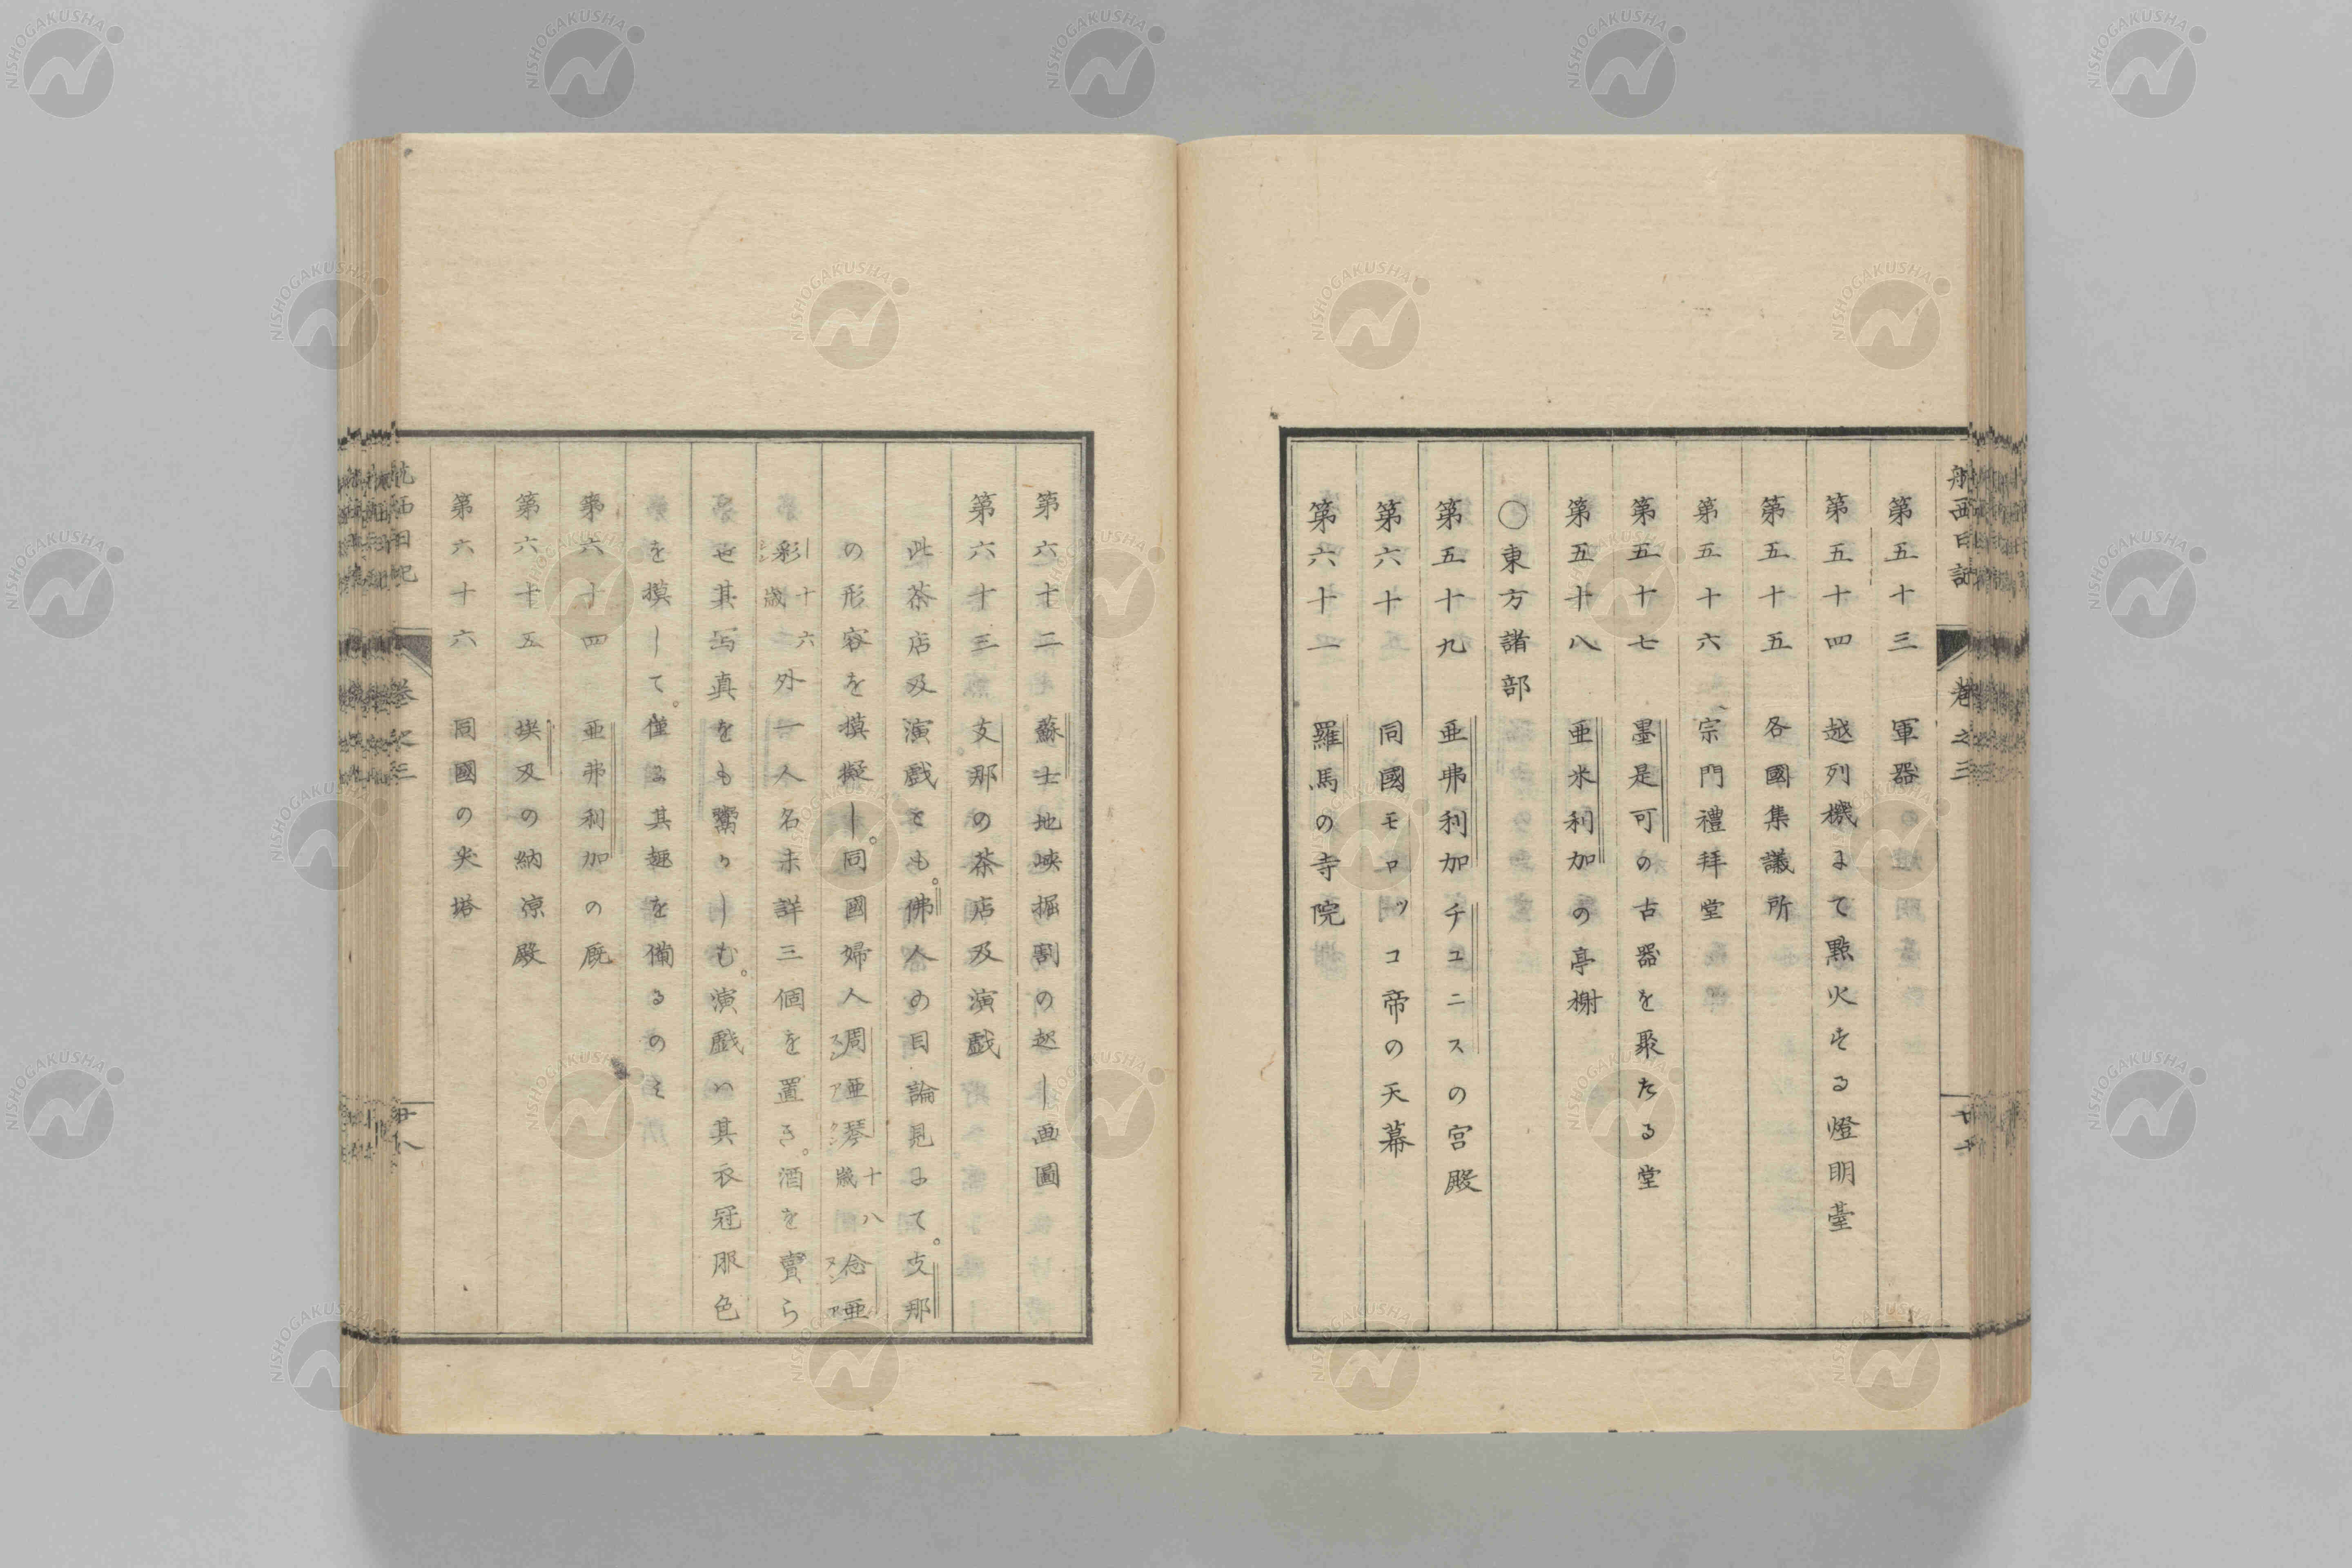 航西日記 巻之三 廿七
第五十三 軍器
第五十四 越列機にて點火する燈明臺
第五十五 各國集議所
第五十六 宗門禮拜堂
第五十七 墨是可の古器を聚たる堂
第五十八 亜米利加の亭榭
〇東方諸部
第五十九 亜弗利加チユニスの宮殿
第六十 同國モロツコ帝の天幕
第六十一 羅馬の寺院
第六十二 蘇士地峡掘割の起し画圖
第六十三 支那の茶店及演戯
此茶店及演戯とも。佛人の目論見にて。支那
の形容を摸擬し。同國婦人周亜琴十八歳念亜
彩十六歳外一人名未詳三個を置き。酒を賣ら
せ其写真をも鬻かしむ。演戯は其衣冠服色
を摸して。僅に其趣を備るのミ
第六十四 亜弗利加の厩
第六十五 埃及の納凉殿
第六十六 同國の尖塔
航西日記 巻之三 廿八
NISHOGAKUSHA